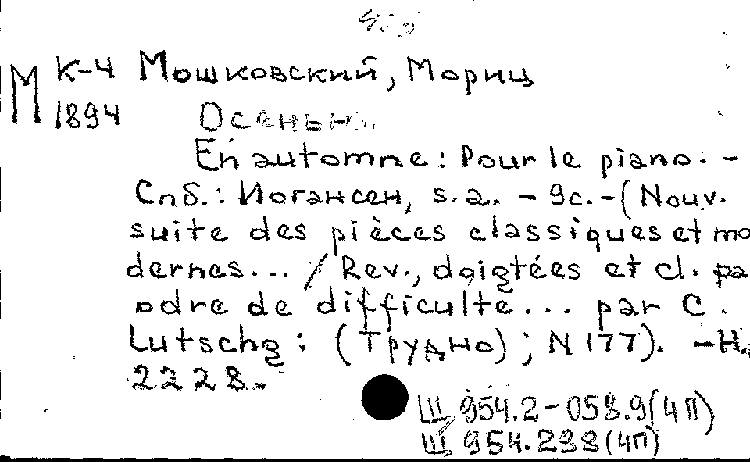 М К-4 Мошковский, Мориц
1894 Осенью.
En automne: Pour le piano. -
Спб.: Иогансен, s.a. - 9с. - (Nouv.
suite des pièces classiques et mo
dernes... / Rev., doigtées et cl. pa
odre de difficulté... par C.
Lutschg: (Трудно); N 177). - Н.
2228.
Ш 954.2-058.9(4П)
Ш 954.238(4П)